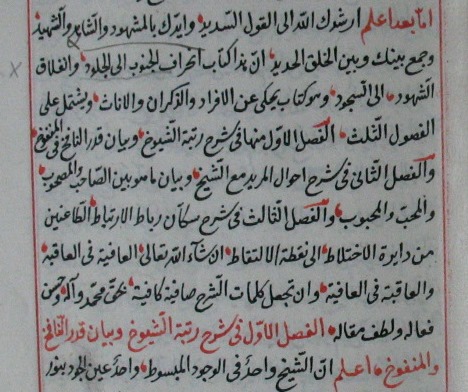 اما بعد اعلم ارشدك الله الى القول السديد وايدك بالمشهود والشاهد والشهيد
وجمع بينك وبين الخلق الجديد ان هذا كتاب انحراف الجنوب الى الجلود والفلاق
الشهود الى السجود وهو كتاب يحكى عن الافراد والذكران والاناث ويشتمل على
الفصول الثلث الفصل الاول منها فى شرح رتبة الشيوخ وبيان قدر النافخ فى المنفوخ
والفصل الثانى فى شرح احوال المريد مع الشيخ وبيان ما هو بين الصاحب والمصحوب
والمحب والمحبوب والفصل الثالث فى شرح سكان رباط الارتباط الطاعنين
من دايرة الاختلاط الى نقطة الالتقاط ان شاء الله تعالى العافية فى العاقبة
والعاقبة فى العافية وان تجعل كلمات الشرح صافية كافية بحق محمد وآله وحسن
فعاله ولطف مقاله الفصل الاول فى شرح رتبة الشيوخ وبيان قدر النافخ
والمنفوخ اعلم ان الشيخ واحد فى الوجود المبسوط واحد عين الجود بنور